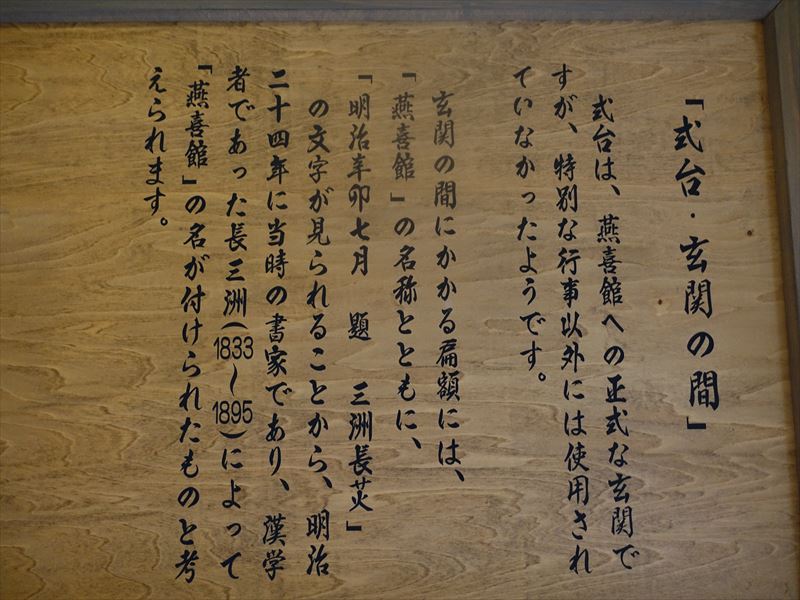 「式台・玄関の間」
式台は、燕喜館への正式な玄関で
すが、特別な行事以外には使用され
ていなかったようです。
玄関の間にかかる扁額には、
「燕喜館」の名称とともに、
「明治辛卯七月　題　三洲長炗」
の文字が見られることから、明治
二十四年に当時の書家であり、漢学
者であった長三洲(1833〜1895)によって
「燕喜館」の名が付けられたものと考
えられます。